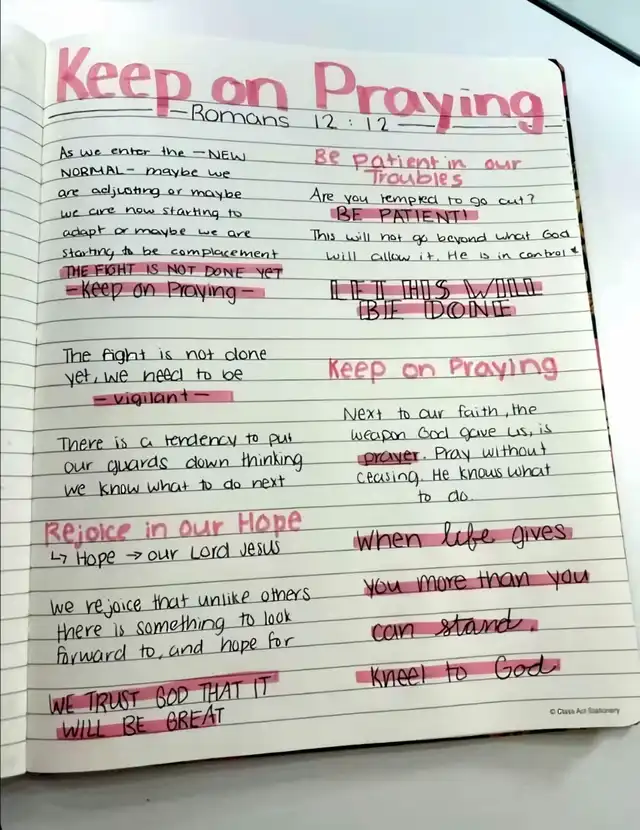 Keep on Praying
Romans 12:12
As we enter the - NEW
NORMAL - maybe we
are adjusting or maybe
we are now starting to
adapt or maybe we are
starting to be complacement
THE FIGHT IS NOT DONE YET
- Keep on Praying -
The fight is not done
yet, we need to be
- vigilant -
There is a tendency to put
our guards down thinking
we know what to do next
Rejoice in our Hope
↳ Hope → our Lord Jesus
We rejoice that unlike others
there is something to look
forward to, and hope for
WE TRUST GOD THAT IT
WILL BE GREAT
Be patient in our
Troubles
Are you tempted to go out?
BE PATIENT!
This will not go beyond what God
will allow it. He is in control*
LET HIS WILL
BE DONE
Keep on Praying
Next to our faith, the
weapon God gave us, is
prayer. Pray without
ceasing. He knows what
to do.
When life gives
you more than you
can stand.
Kneel to God
© Class Act Stationery